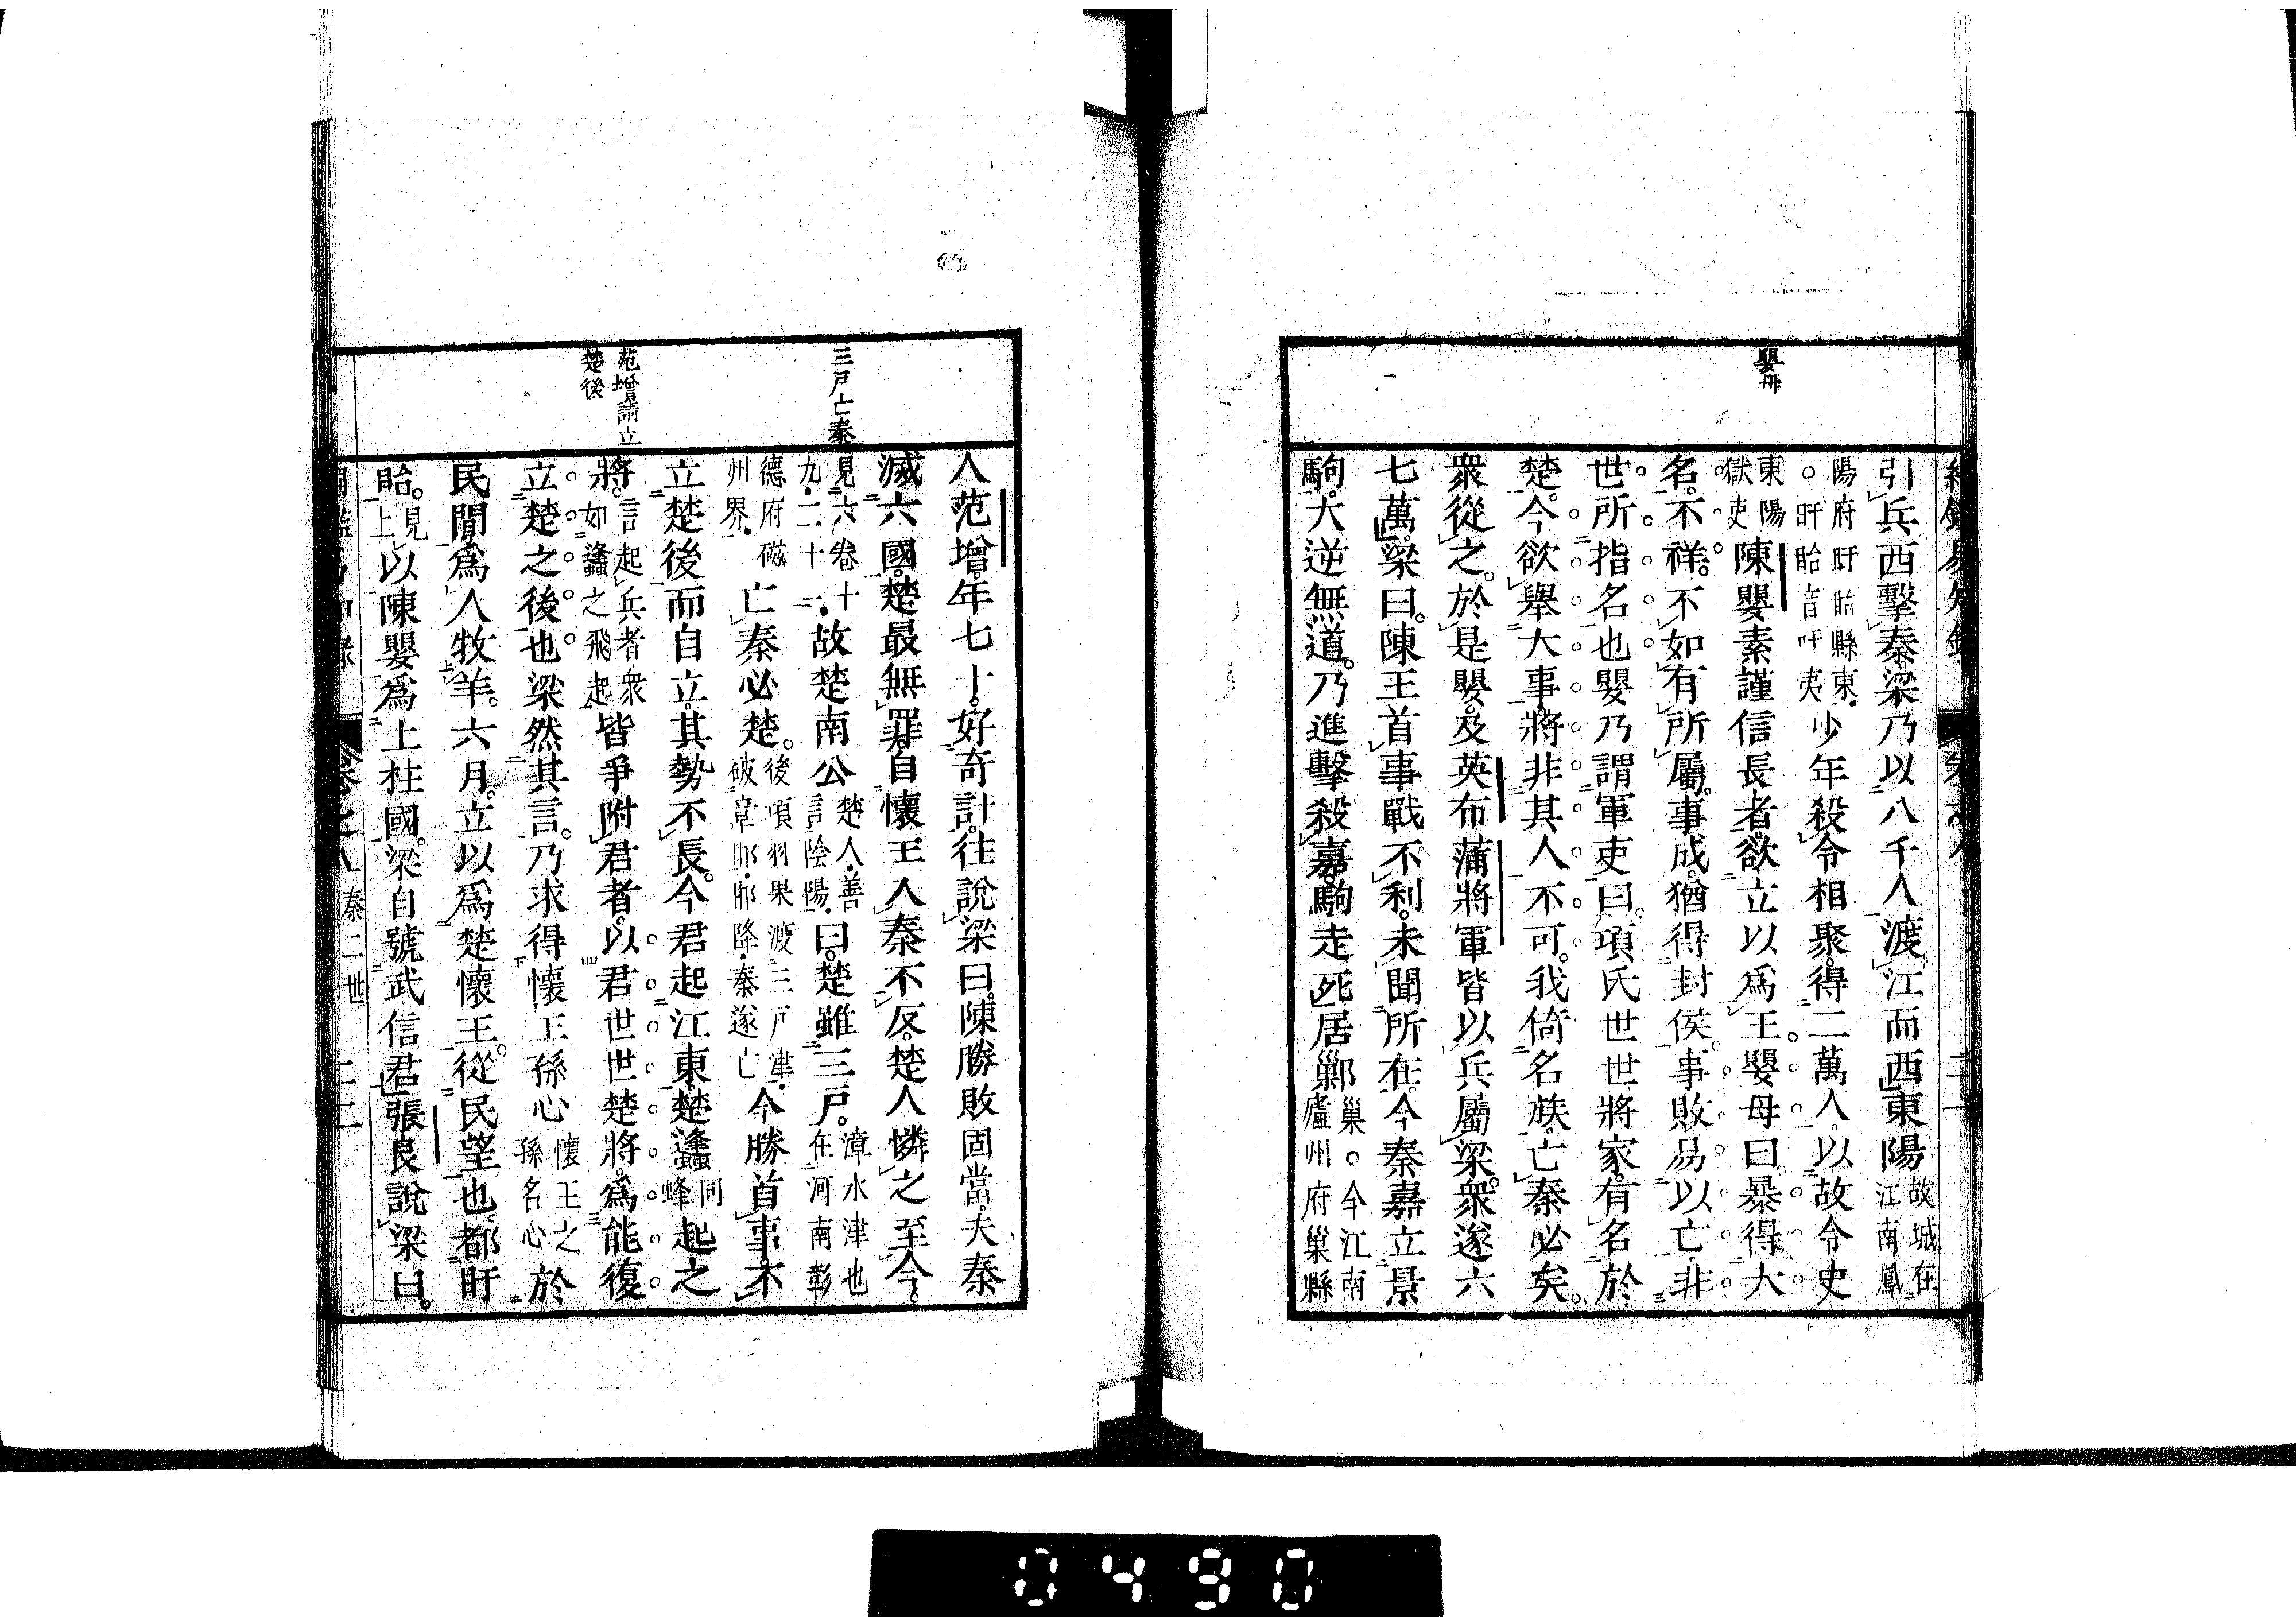 嬰母
引兵西擊秦梁乃以八千人渡江而西東陽故城在江南鳳
陽府盱眙縣東。盱眙音吁夷少年殺令相聚。得二萬人。以故令史
東陽獄吏陳嬰素謹信長者。欲立以爲王。嬰母曰。暴得大
名。不祥。不如有所屬。事成。猶得封侯。事敗易以亡。非
世所指名也嬰乃謂軍吏曰。項氏世世將家。有名於
楚。今欲舉大事。將非其人不可。我倚名族。亡秦必矣。
衆從之。於是嬰。及英布蒲將軍皆以兵屬梁。衆遂六
七萬。梁曰。陳王首事戰不利。未聞所在。今秦嘉立景
駒。大逆無道。乃進擊殺嘉。駒走死居鄛巢。今江南廬州府巢縣
三戸亡秦
范增請立
楚後
人范增。年七十。好奇計。往說梁曰。陳勝敗固當。夫秦
滅六國。楚最無罪。自懷王入秦不反。楚人憐之至今。
見六卷十九。二十二。故楚南公楚人。善言陰陽。曰。楚雖三戸。漳水津也在河南彰
德府磁州界。亡秦必楚。後項羽果渡三戸津。破章邯。邯降。秦遂亡今勝首事。不
立楚後而自立。其勢不長。今君起江東。楚蠭同蜂起之
將。言起兵者衆如蠭之飛起皆爭附君者。以君世世楚將。爲能復
立楚之後也。梁然其言。乃求得懷王孫心懷王之孫名心於
民閒。爲人牧羊。六月。立以爲楚懷王。從民望也。都盱
眙。見上以陳嬰爲上柱國。梁自號武信君。張良說梁曰。
卷之八 秦二世
0490